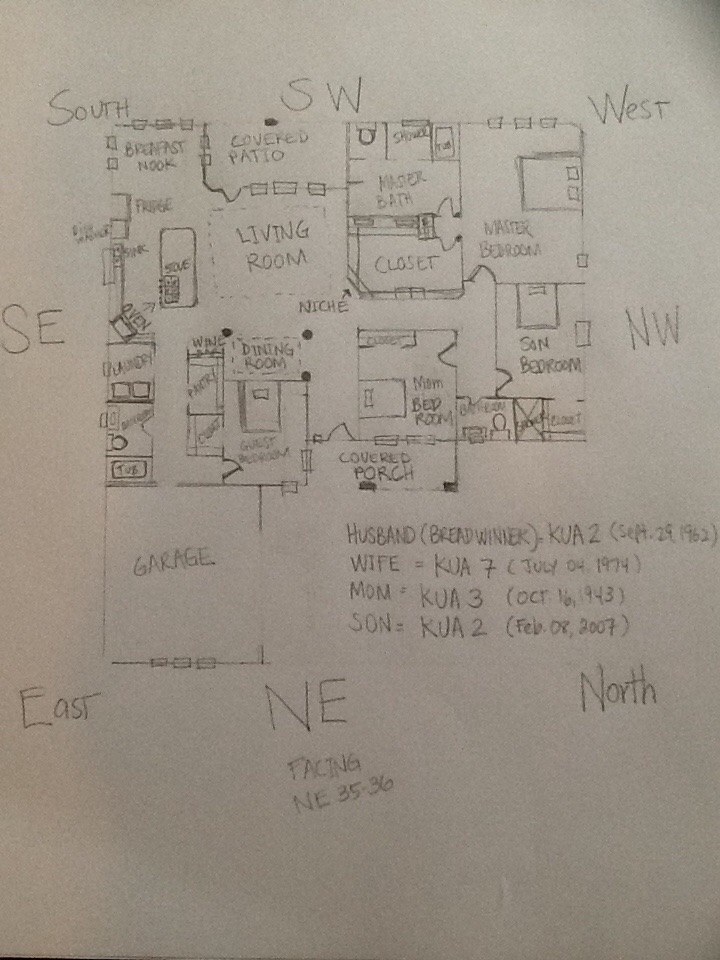 South
SW
West
BREAKFAST
NOOK
COVERED
PATIO
SHOWER
TUB
MASTER
BATH
FRIDGE
SINK
STOVE
LIVING
ROOM
CLOSET
MASTER
BEDROOM
NICHE
OVEN
SE
NW
WINE
DINING
ROOM
CLOSET
SON
BEDROOM
LAUNDRY
PANTRY
MOM
BED
ROOM
BATHROOM
CLOSET
GUEST
BEDROOM
TUB
COVERED
PORCH
GARAGE
HUSBAND (BREADWINNER)= KUA 2 (Sept. 29, 1962)
WIFE = KUA 7 (JULY 04, 1974)
MOM = KUA 3 (OCT. 16, 1943)
SON= KUA 2 (Feb. 08, 2007)
East
NE
North
FACING
NE 35-36